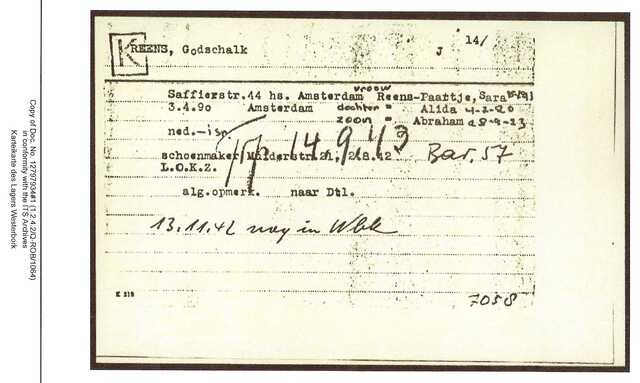 REENS, Godschalk J 14/
K
vrouw
Saffierstr.44 hs. Amsterdam Reens-Paartje, Sara
3.4.90 Amsterdam dochter " Alida 4-2-20
zoon " Abraham 28-9-23
ned.-isr.
Tr 14 9 43
schoenmaker Mulderstr.21. 2.8.42 Bar. 57
L.O.K.Z.
alg.opmerk. naar Dtl.
13.11.42 nog in Wbk
K 319
7058
Copy of Doc. No. 12797934#1 (1.2.4.2/D-ROB/1064)
in conformity with the ITS Archives
Karteikarte des Lagers Westerbork